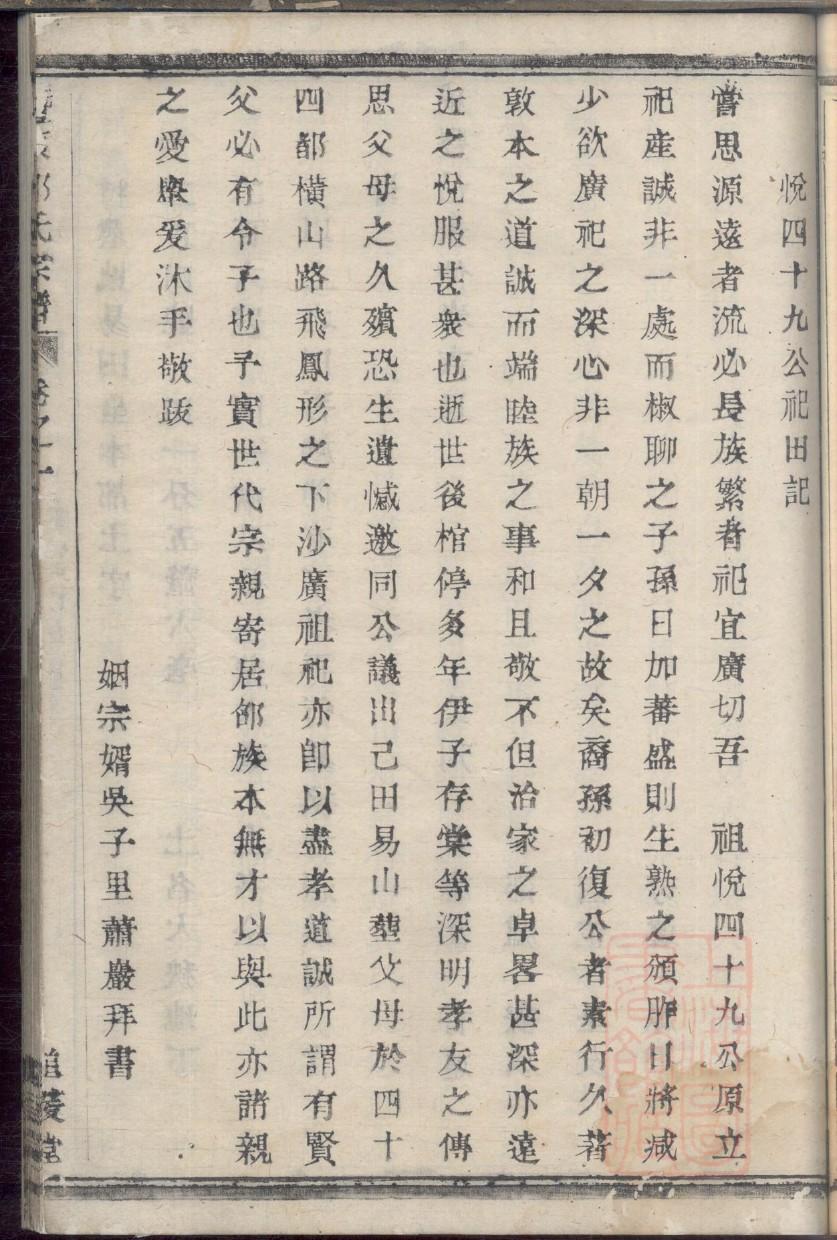 悅四十九公祀田記
嘗思源遠者流必長族繁者祀宜廣切吾　祖悅四十九公原立
祀產誠非一處而椒聊之子孫日加蕃盛則生熟之頒胙日將减
少欲廣祀之深心非一朝一夕之故矣裔孫初復公者素行久著
敦本之道誠而端睦族之事和且敬不但治家之卓畧甚深亦遠
近之悅服甚衆也逝世後棺停多年伊子存棠等深明孝友之傳
思父母之久殯恐生遺憾邀同公議出己田易山塟父母於四十
四都横山路飛鳳形之下沙廣祖祀亦卽以盡孝道誠所謂有賢
父必有令子也予實世代宗親寄居邰族本無才以與此亦諸親
之愛舉爰沐手敬跋
姻宗婿吳子里蕭嚴拜書
氏宗譜
卷之一
堂